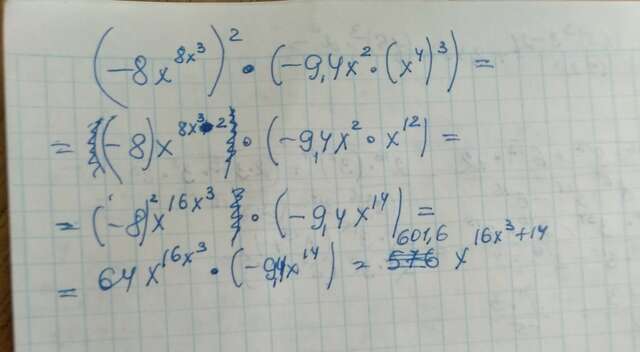 (-8x^{8x^3})^2 · (-9,4x^2 · (x^4)^3) =
= (-8)x^{8x^3·2} · (-9,4x^2 · x^{12}) =
= (-8)^2 x^{16x^3} · (-9,4x^{14}) =
= 64x^{16x^3} · (-9,4x^{14}) = 601,6 x^{16x^3+14}